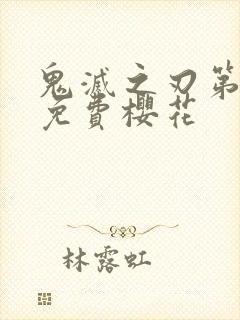 鬼滅之刃第
免費櫻花
林露虹